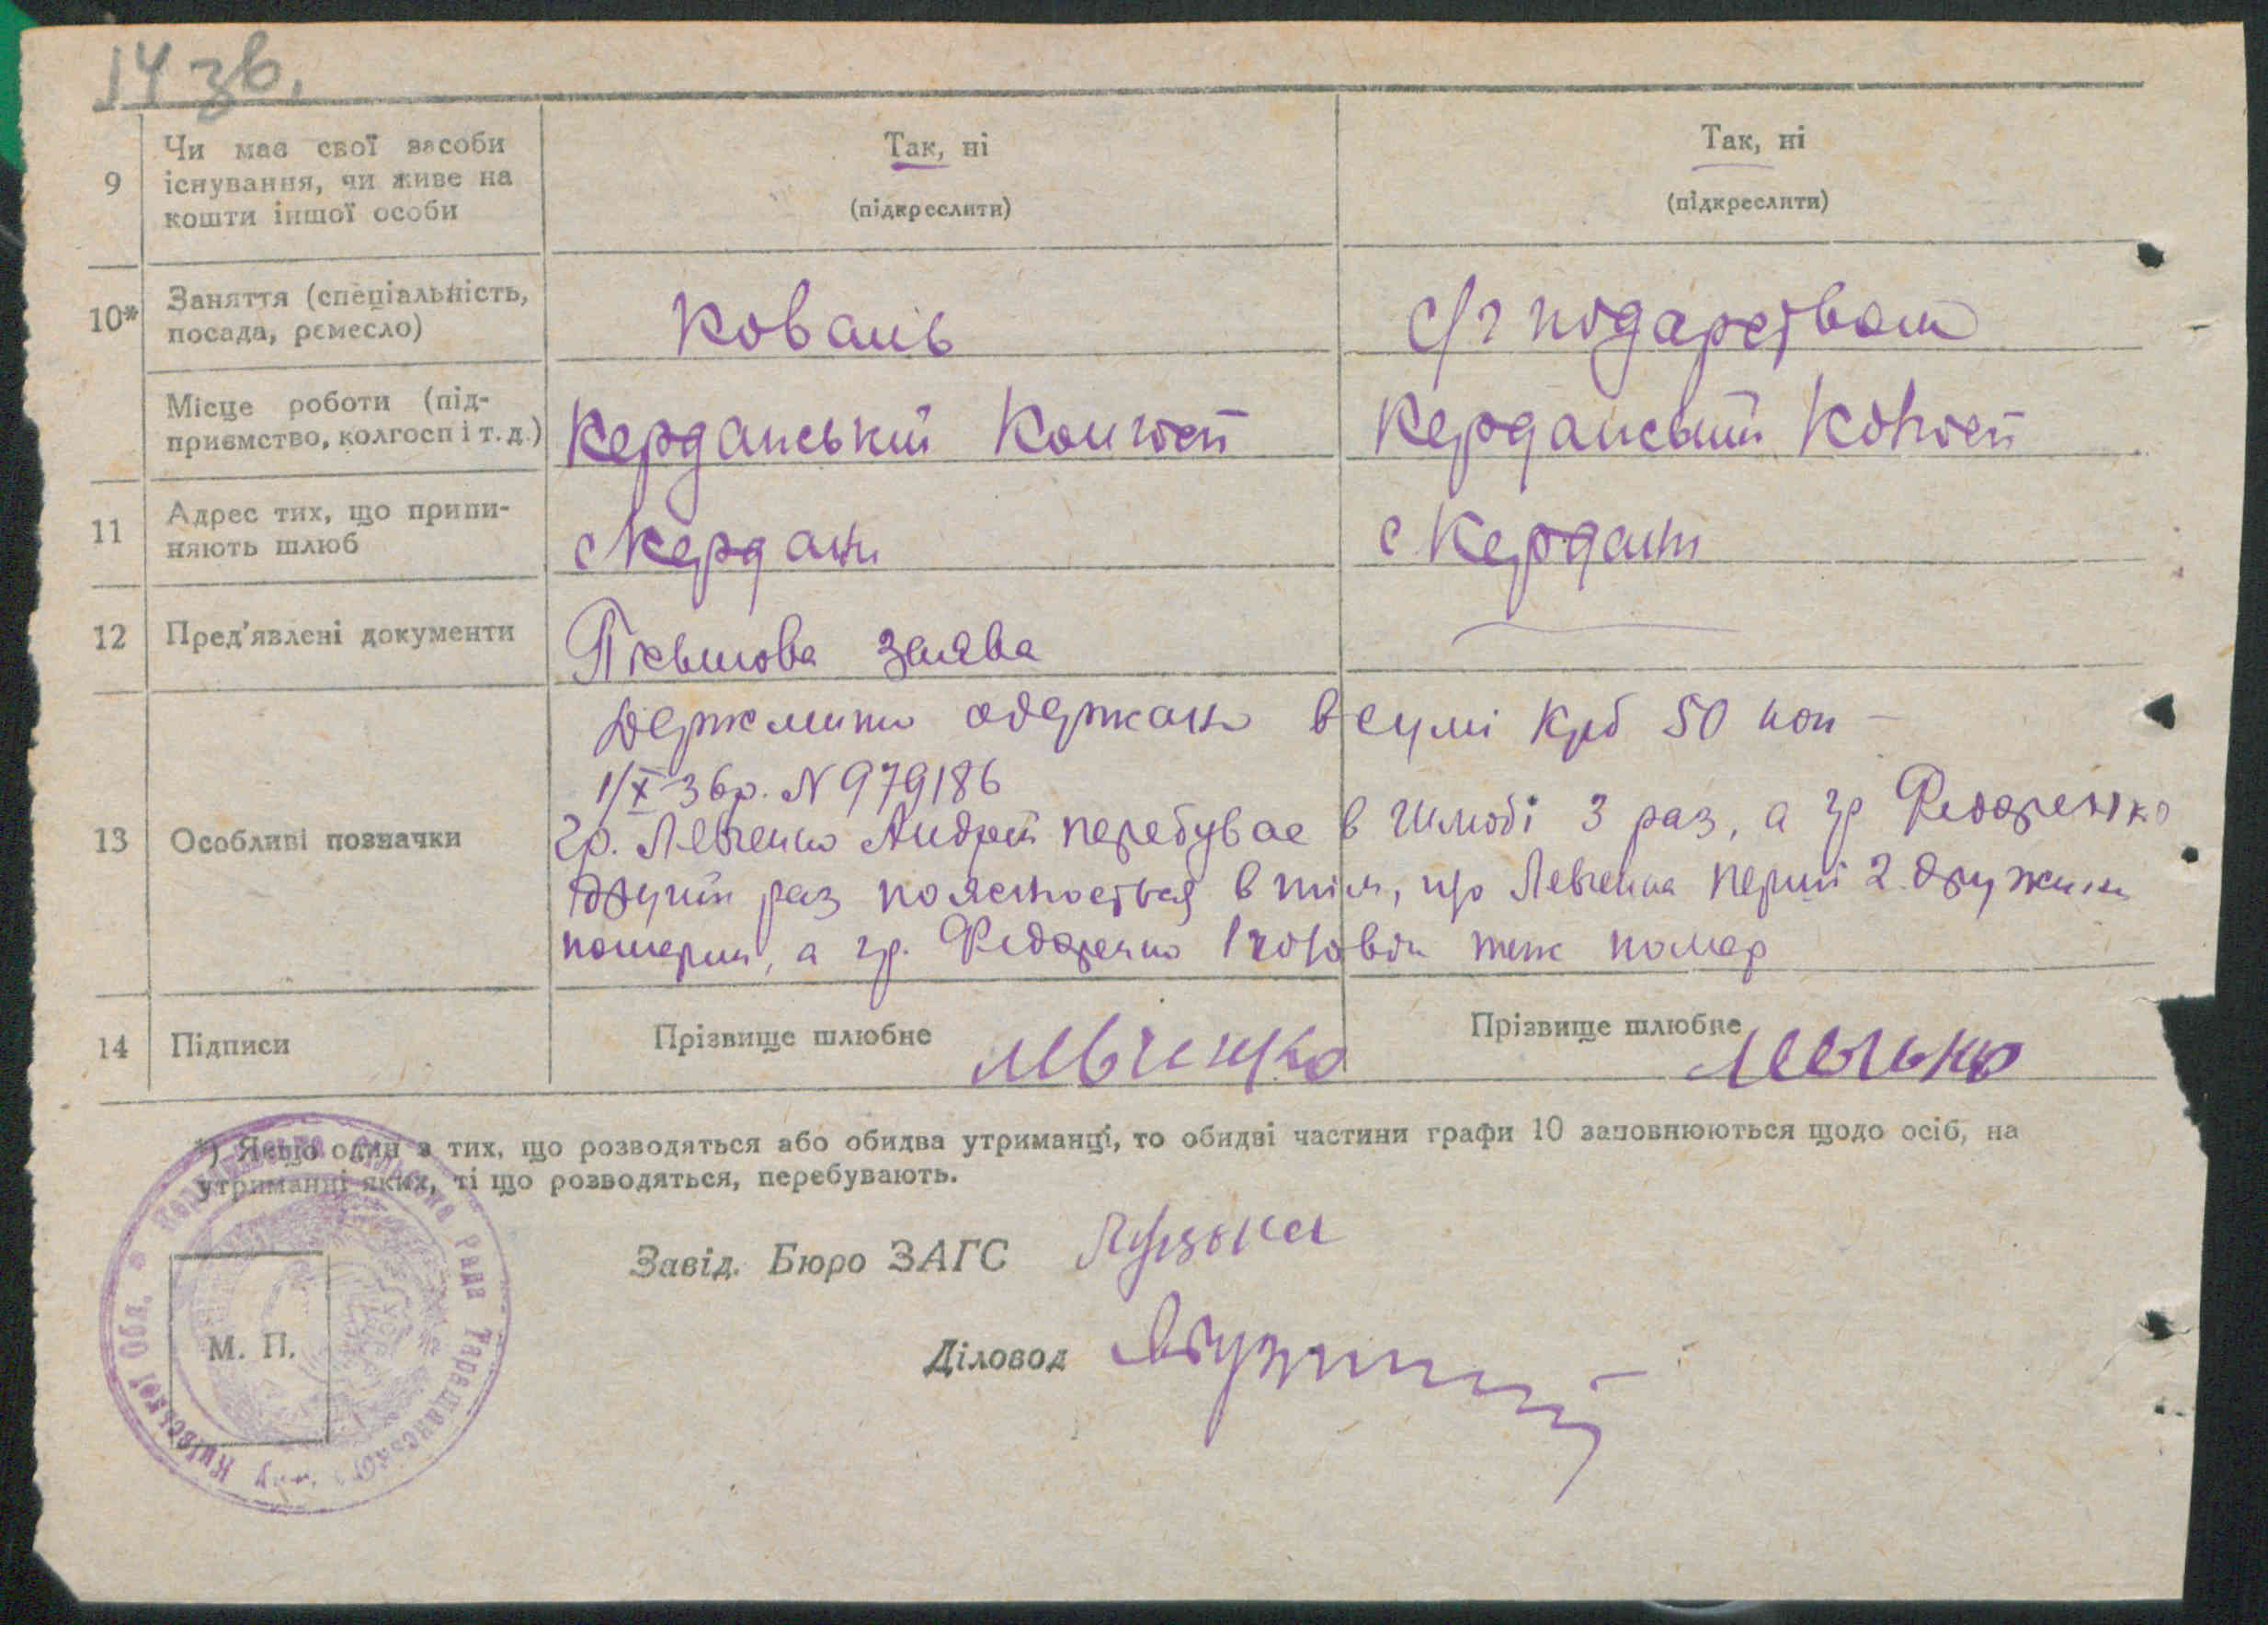 14 зв.
9 Чи має свої засоби існування, чи живе на кошти іншої особи
Так, ні
(підкреслити)
Так, ні
(підкреслити)
10* Заняття (спеціальність, посада, ремесло)
Коваль
с/г подарством
Місце роботи (підприємство, колгосп і т. д.)
Керданський Колгосп
Керданський Колгосп
11 Адрес тих, що припиняють шлюб
с Кердани
с Кердани
12 Пред'явлені документи
Письмова заява
13 Особливі позначки
Держмито одержано в сумі Крб 50 коп —
1/X-36р. N 979186
Гр. Левченко Андрей перебуває в шлюбі 3 раз, а гр Федоренко
другий раз пояснюється в тім, що Левченка перші 2 дружини
померли, а гр. Федоренко 1 чоловік теж помер
14 Підписи
Прізвище шлюбне Левченко
Прізвище шлюбне
*) Якщо один з тих, що розводяться або обидва утриманці, то обидві частини графи 10 заповнюються щодо осіб, на
утриманні яких, ті що розводяться, перебувають.
Завід. Бюро ЗАГС
Діловод
М. П.
Сільська Рада Таращанського Київської Обл.